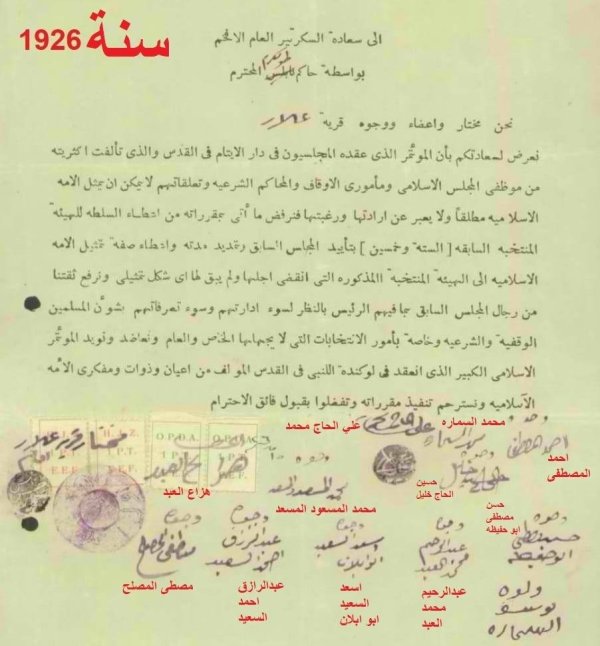 سنة 1926
الى سعادة السكرتير العام الافخم
بواسطة حاكم المحترم
نحن مختار واعضاء ووجوه قرية علار
نعرض لسعادتكم بأن المؤتمر الذى عقده المجلسيون فى دار الايتام فى القدس والذى تألفت اكثريته
من موظفى المجلس الاسلامى ومأمورى الاوقاف والمحاكم الشرعيه وتعلقاتهم لايمكن ان يمثل الامه
الاسلاميه مطلقاً ولا يعبر عن ارادتها ورغبتها فنرفض ما أتى بمقرراته من اعطاء السلطه للهيئة
المنتخبه السابقه [ الستة وخمسين ] بتأييد المجلس السابق وتمديد مدته واعطاء صفة تمثيل الامه
الاسلاميه الى الهيئة المنتخبة المذكوره التى انقضى اجلها ولم يبق لها اى شكل تمثيلى ونرفع ثقتنا
من رجال المجلس السابق بما فيهم الرئيس بالنظر لسوء ادارتهم وسوء تصرفاتهم بشوٴن المسلمين
الوقفية والشرعيه وخاصة بأمور الانتخابات التى لا يجهلها الخاص والعام ونعاضد ونويد الموٴتمر
الاسلامى الكبير الذى انعقد فى لوكندة اللنبى فى القدس الموٴلف من اعيان وذوات ومفكرى الأمه
الاسلاميه ونسترحم تنفيذ مقرراته وتفضلوا بقبول فائق الاحترام
محمد السماره
علي الحاج محمد
احمد المصطفى
مختار قرية علار
O.P.D.A.
O.P.D.A.
E.E.F.
هزاع العبد
محمد المسعود المسعد
حسين الحاج خليل
حسن مصطفى ابو حفيظه
وجوه
حسن مصطفى
ابو حفيظه
عبدالرحيم
محمد العبد
اسعد السعيد
ابو ابلان
عبدالرزاق
احمد السعيد
مصطفى المصلح
مصطى المصلح
عبدالرازق احمد السعيد
اسعد السعيد ابو ابلان
عبدالرحيم محمد العبد
يوسف
السماره